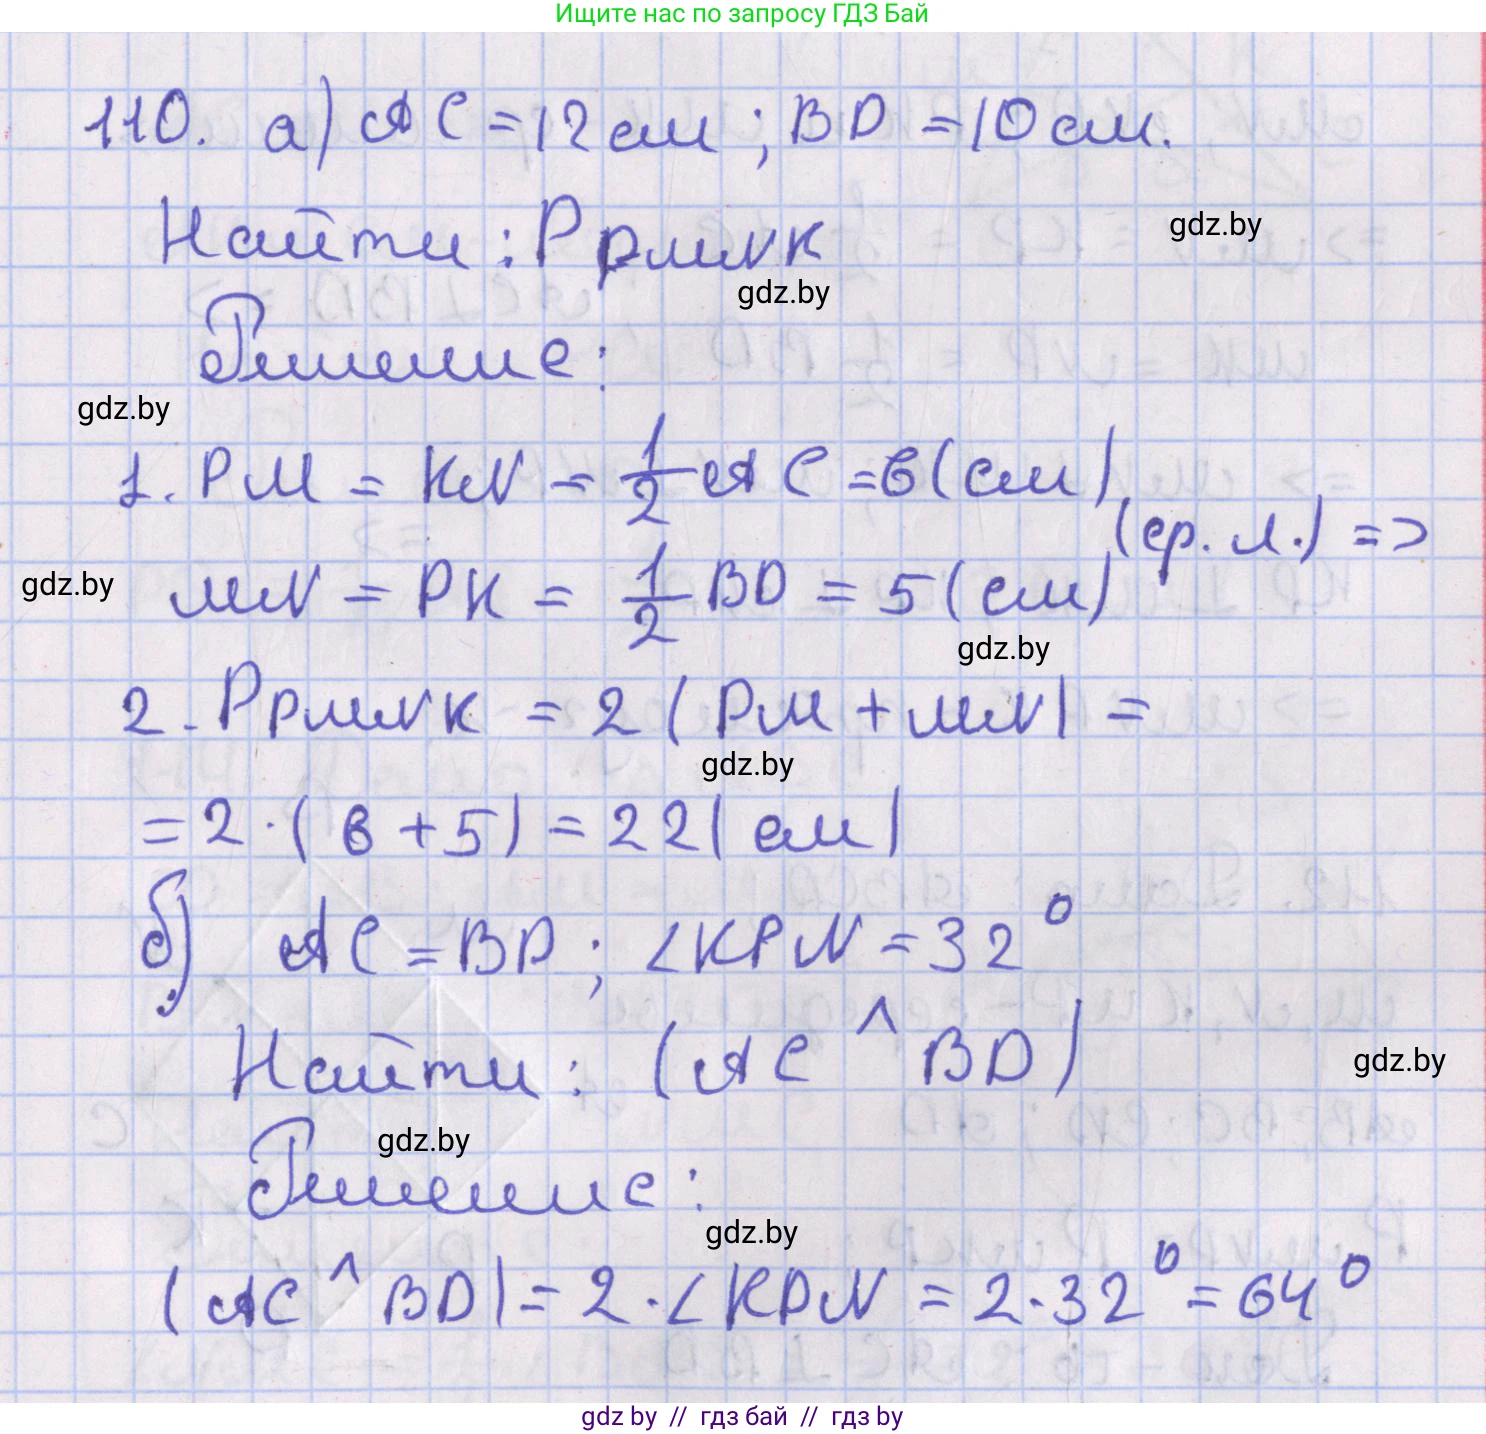 Ищите нас по запросу ГДЗ Бай
110. а) AC = 12 см ; BD = 10 см.
Найти : P PMNK
gdz.by
gdz.by
Решение :
gdz.by
1. PM = KN = 1/2 AC = 6 (см)
(ср. л.) =>
gdz.by
MN = PK = 1/2 BD = 5 (см)
gdz.by
2. P PMNK = 2 (PM + MN) =
gdz.by
= 2 · (6 + 5) = 22 (см)
б) AC = BD ; ∠KPN = 32°
Найти : (AC ^ BD)
gdz.by
gdz.by
Решение :
gdz.by
(AC ^ BD) = 2 · ∠KPN = 2 · 32° = 64°
gdz by // гдз бай // гдз by